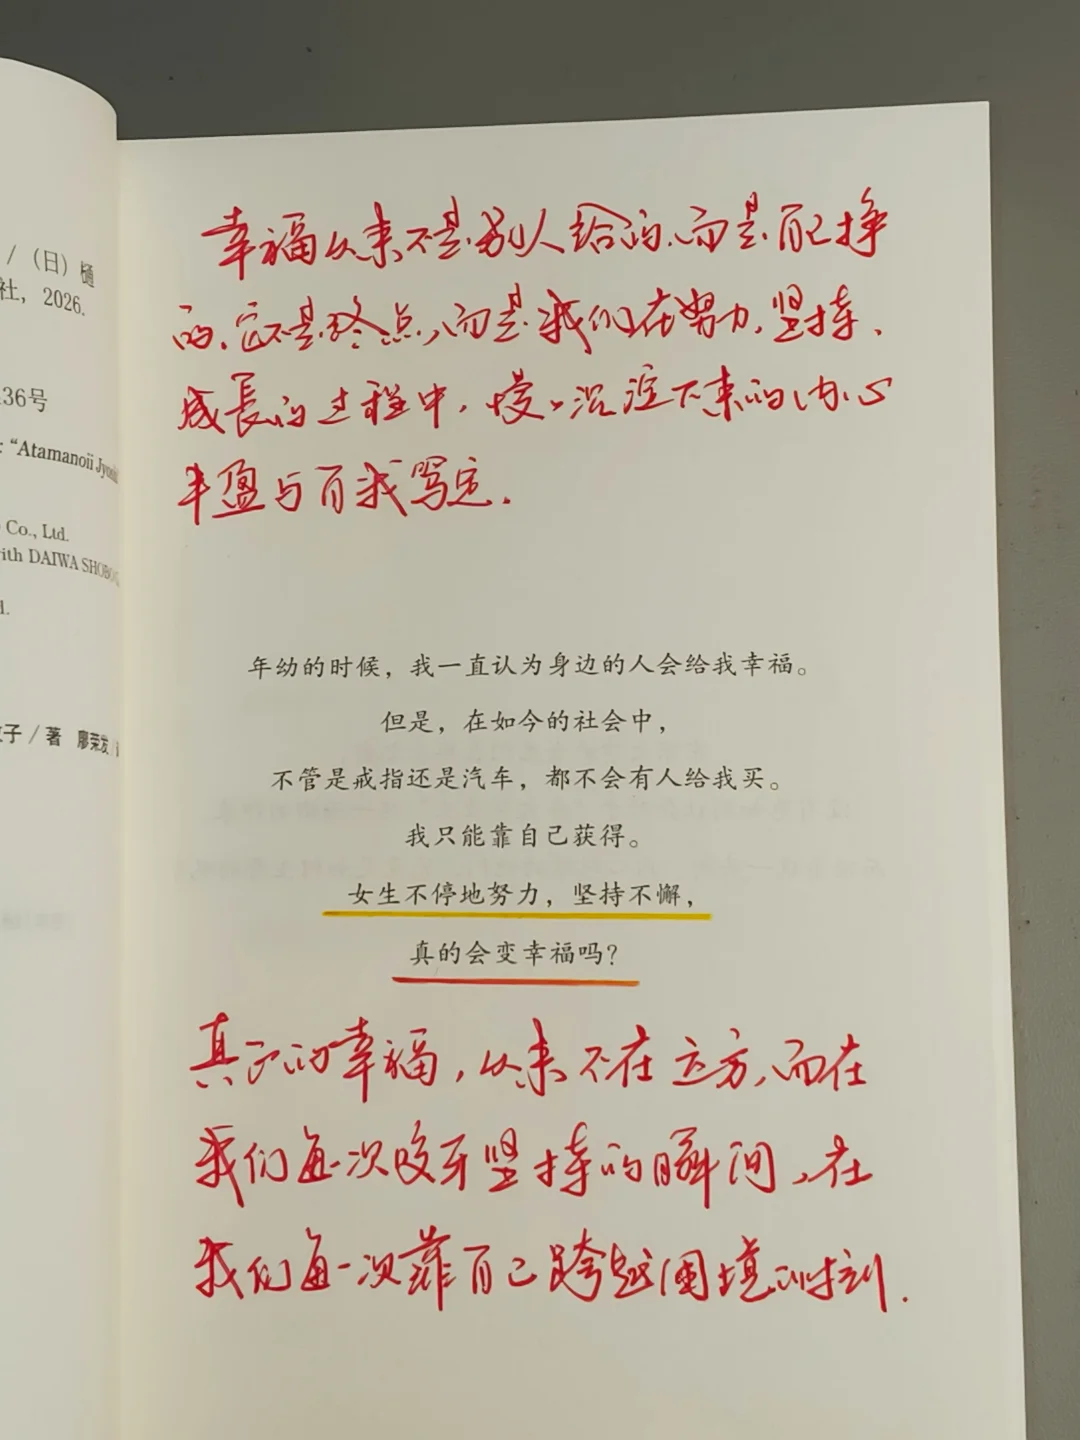 /（日）樋
社，2026.
36号
: “Atamanoii
Co., Ltd.
with DAIWA
子／著 廖荣发
幸福从来不是别人给的，而是自己挣
的，它不是终点，而是我们在努力，坚持、
成長的过程中，慢慢沉淀下来的内心
丰盈与自我笃定.
年幼的时候，我一直认为身边的人会给我幸福。
但是，在如今的社会中，
不管是戒指还是汽车，都不会有人给我买。
我只能靠自己获得。
女生不停地努力，坚持不懈，
真的会变幸福吗？
真正的幸福，从来不在远方，而在
我们每一次咬牙坚持的瞬间，在
我们每一次靠自己跨越困境的时刻.